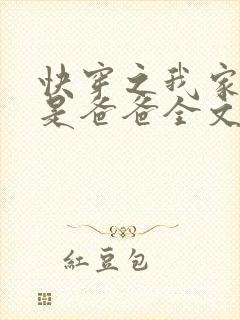 快穿之我家
是爸爸全文
紅豆包